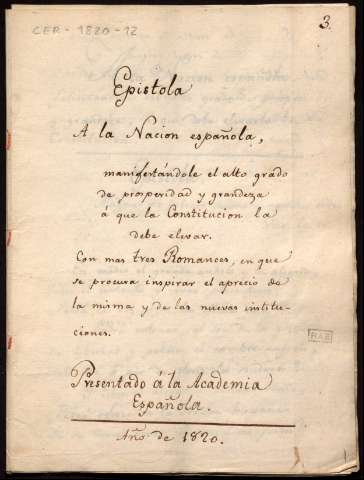 CER-1820-12
3.
Epistola
A la Nacion española,
manifestándole el alto grado
de prosperidad y grandeza
á que la Constitucion la
debe elevar.
Con mas tres Romances, en que
se procura inspirar el aprecio de
la misma y de las nuevas institu-
ciones.
RAE
Presentado á la Academia
Española.
Año de 1820.